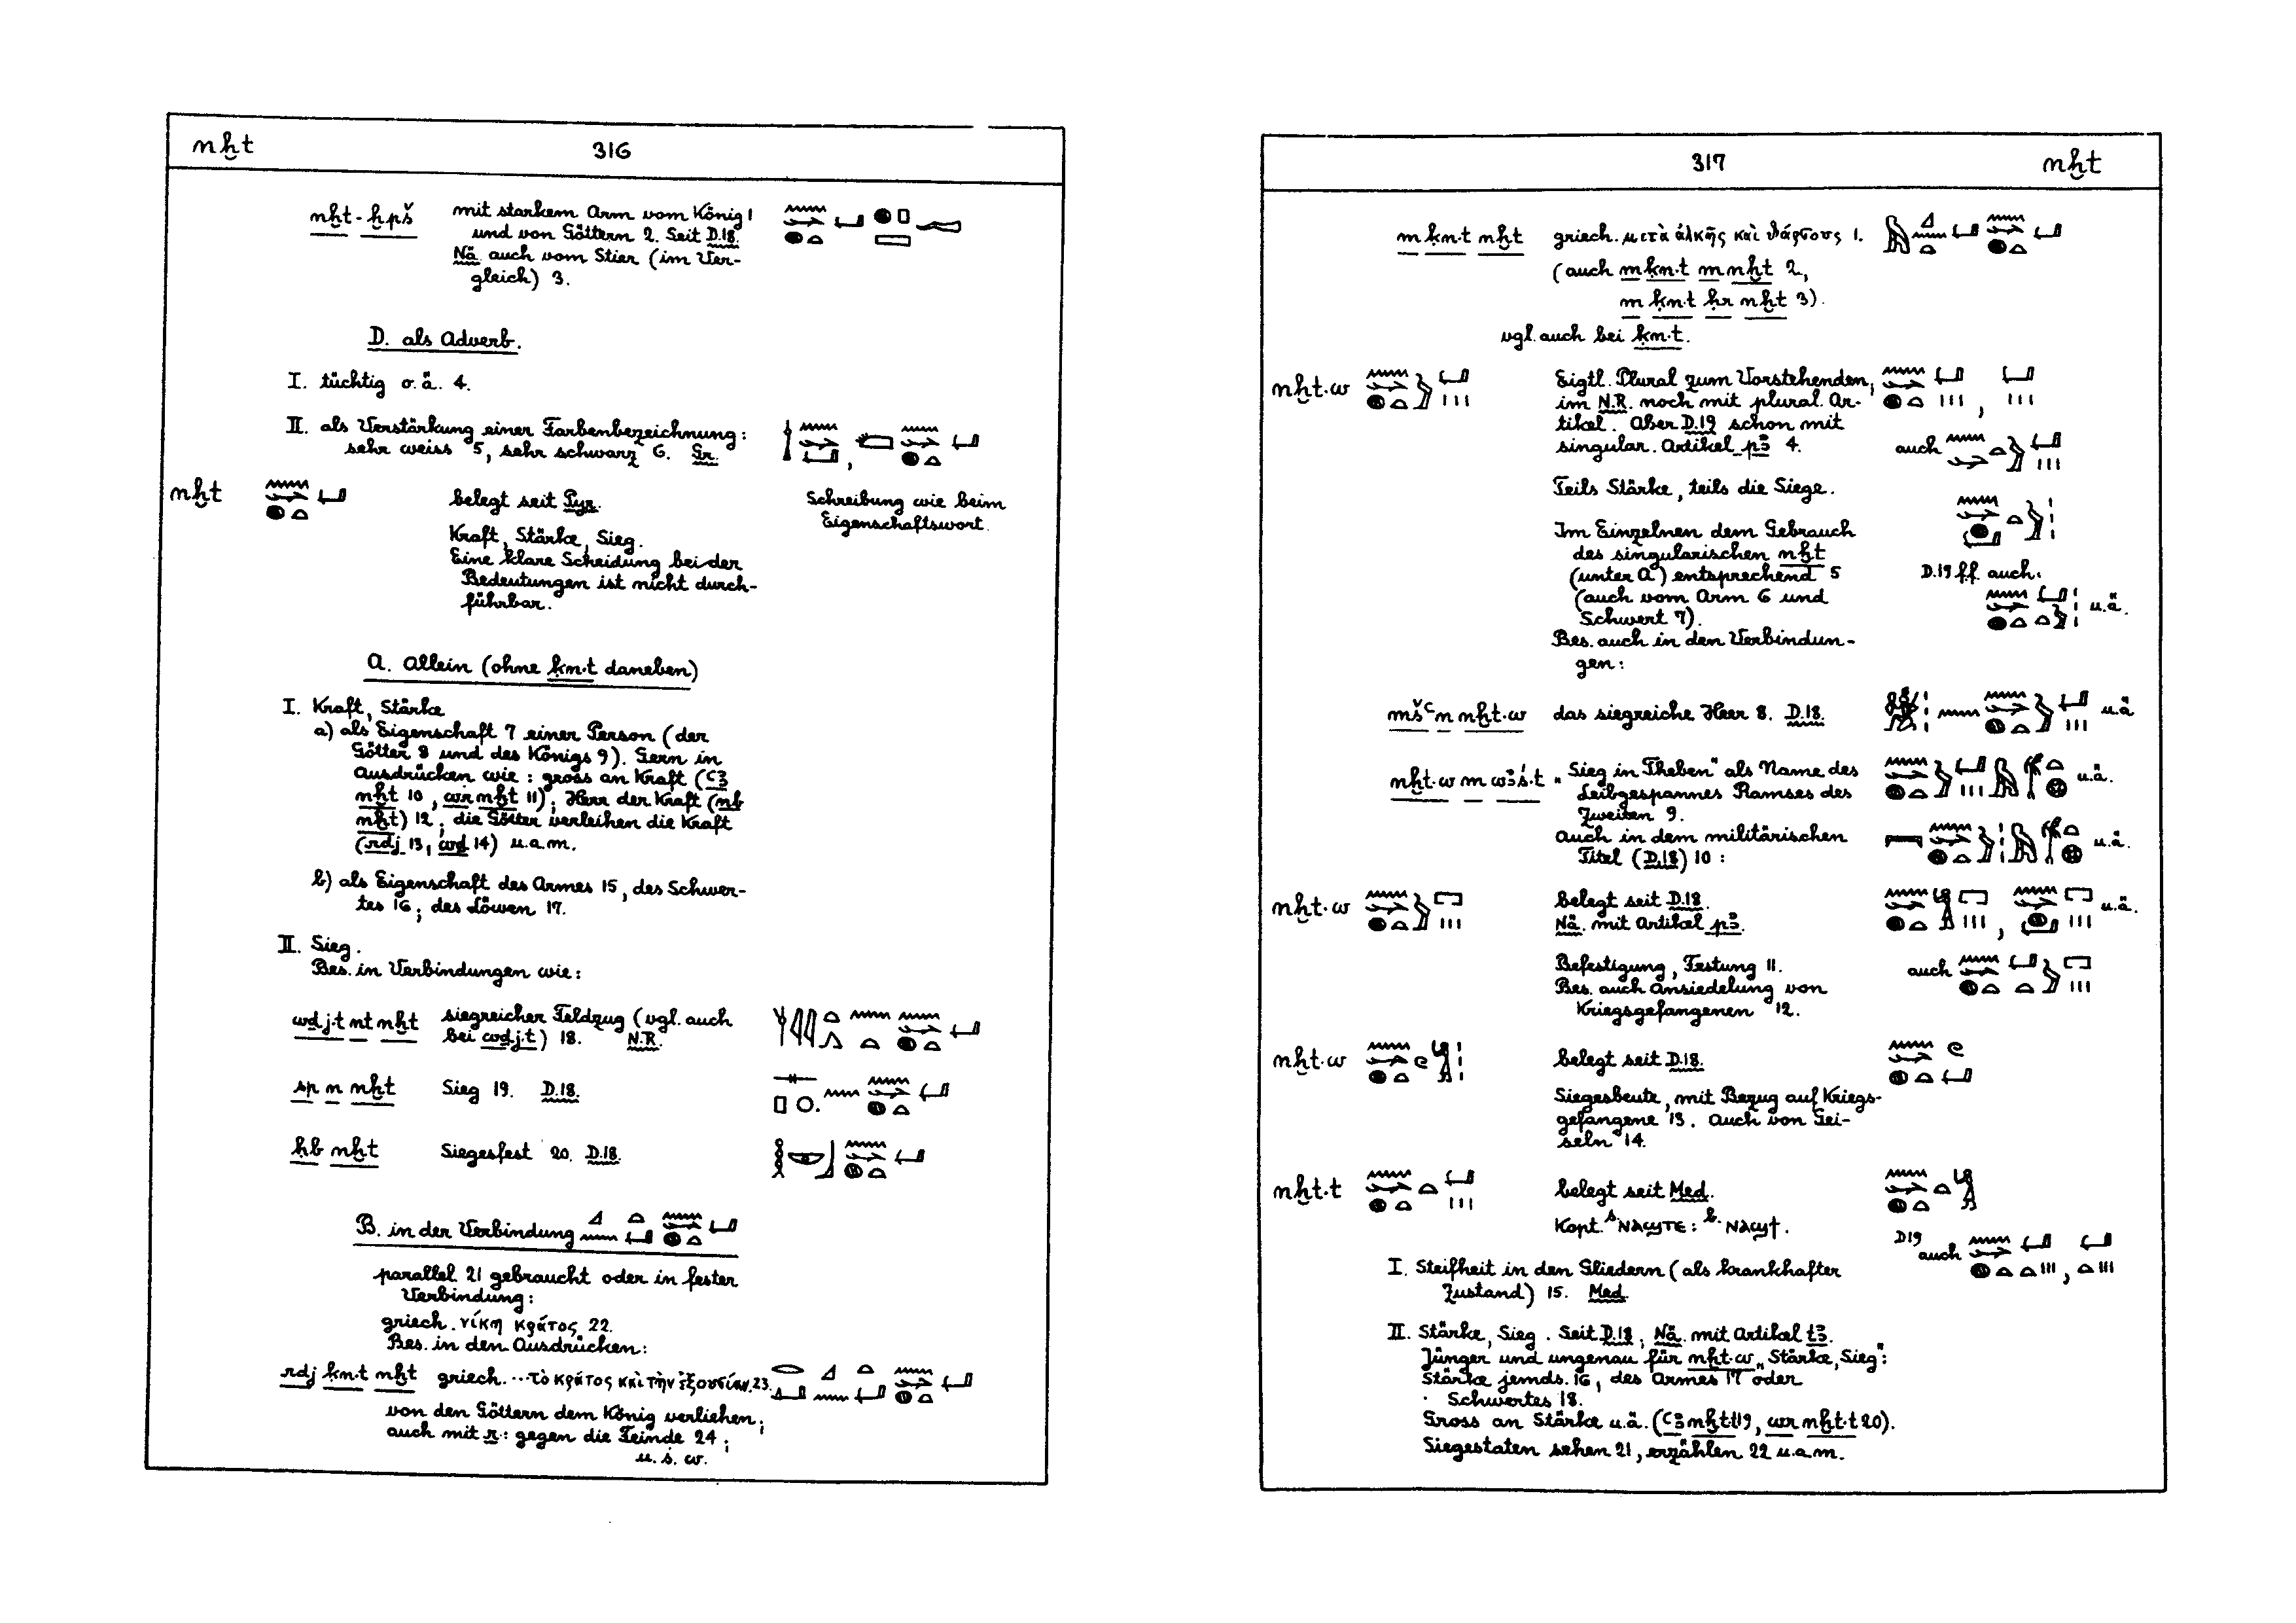 nḫt
316
nḫt-ḫpš mit starkem Arm vom König 1
und von Göttern 2. Seit D.18.
Nä. auch vom Stier (im Ver-
gleich) 3.
D. als Adverb.
I. tüchtig o.ä. 4.
II. als Verstärkung einer Farbenbezeichnung:
sehr weiss 5, sehr schwarz 6. Gr.
nḫt belegt seit Pyr. Schreibung wie beim
Eigenschaftswort.
Kraft, Stärke, Sieg.
Eine klare Scheidung bei der
Bedeutungen ist nicht durch-
führbar.
A. Allein (ohne ḳn·t daneben)
I. Kraft, Stärke
a) als Eigenschaft 7 einer Person (der
Götter 8 und des Königs 9). Gern in
Ausdrücken wie: gross an Kraft (ꜥꜣ
nḫt 10, wr nḫt 11); Herr der Kraft (nb
nḫt) 12; die Götter verleihen die Kraft
(rdj 13, wḏ 14) u.a.m.
b) als Eigenschaft des Armes 15, des Schwer-
tes 16; des Löwen 17.
II. Sieg.
Bes. in Verbindungen wie:
wḏj·t nt nḫt siegreicher Feldzug (vgl. auch
bei wḏj·t) 18. N.R.
sp n nḫt Sieg 19. D.18.
ḥb nḫt Siegesfest 20. D.18.
B. in der Verbindung
parallel 21 gebraucht oder in fester
Verbindung:
griech. νίκη κράτος 22.
Bes. in den Ausdrücken:
rdj ḳn·t nḫt griech. ...τὸ κράτος καὶ τὴν ἐξουσίαν. 23.
von den Göttern dem König verliehen;
auch mit r: gegen die Feinde 24;
u.s.w.
317
nḫt
m ḳn·t nḫt griech. μετὰ ἀλκῆς καὶ θάρσους 1.
(auch m ḳn·t m nḫt 2,
m ḳn·t ḥr nḫt 3).
vgl. auch bei ḳn·t.
nḫt·w Eigtl. Plural zum Vorstehenden,
im N.R. noch mit plural. Ar-
tikel. Aber D.19 schon mit
singular. Artikel pꜣ 4. auch
Teils Stärke, teils die Siege.
Im Einzelnen dem Gebrauch
des singularischen nḫt
(unter A) entsprechend 5 D.19 ff. auch:
(auch vom Arm 6 und
Schwert 7). u.ä.
Bes. auch in den Verbindun-
gen:
mšꜥ n nḫt·w das siegreiche Heer 8. D.18. u.ä
nḫt·w m wꜣś·t „Sieg in Theben" als Name des u.ä.
Leibgespannes Ramses des
Zweiten 9.
Auch in dem militärischen u.ä.
Titel (D.18) 10:
nḫt·w belegt seit D.18. u.ä.
Nä. mit Artikel pꜣ.
Befestigung, Festung 11. auch
Bes. auch Ansiedelung von
Kriegsgefangenen 12.
nḫt·w belegt seit D.18.
Siegesbeute, mit Bezug auf Kriegs-
gefangene 13. Auch von Gei-
seln 14.
nḫt·t belegt seit Med.
Kopt. S. ⲛⲁϣⲧⲉ: B. ⲛⲁϣϯ.
D19 auch
I. Steifheit in den Gliedern (als krankhafter
Zustand) 15. Med.
II. Stärke, Sieg. Seit D.18; Nä. mit Artikel tꜣ.
Jünger und ungenau für nḫt·w „Stärke, Sieg":
Stärke jemds. 16, des Armes 17 oder
Schwertes 18.
Gross an Stärke u.ä. (ꜥꜣ nḫt·t 19, wr nḫt·t 20).
Siegestaten sehen 21, erzählen 22 u.a.m.